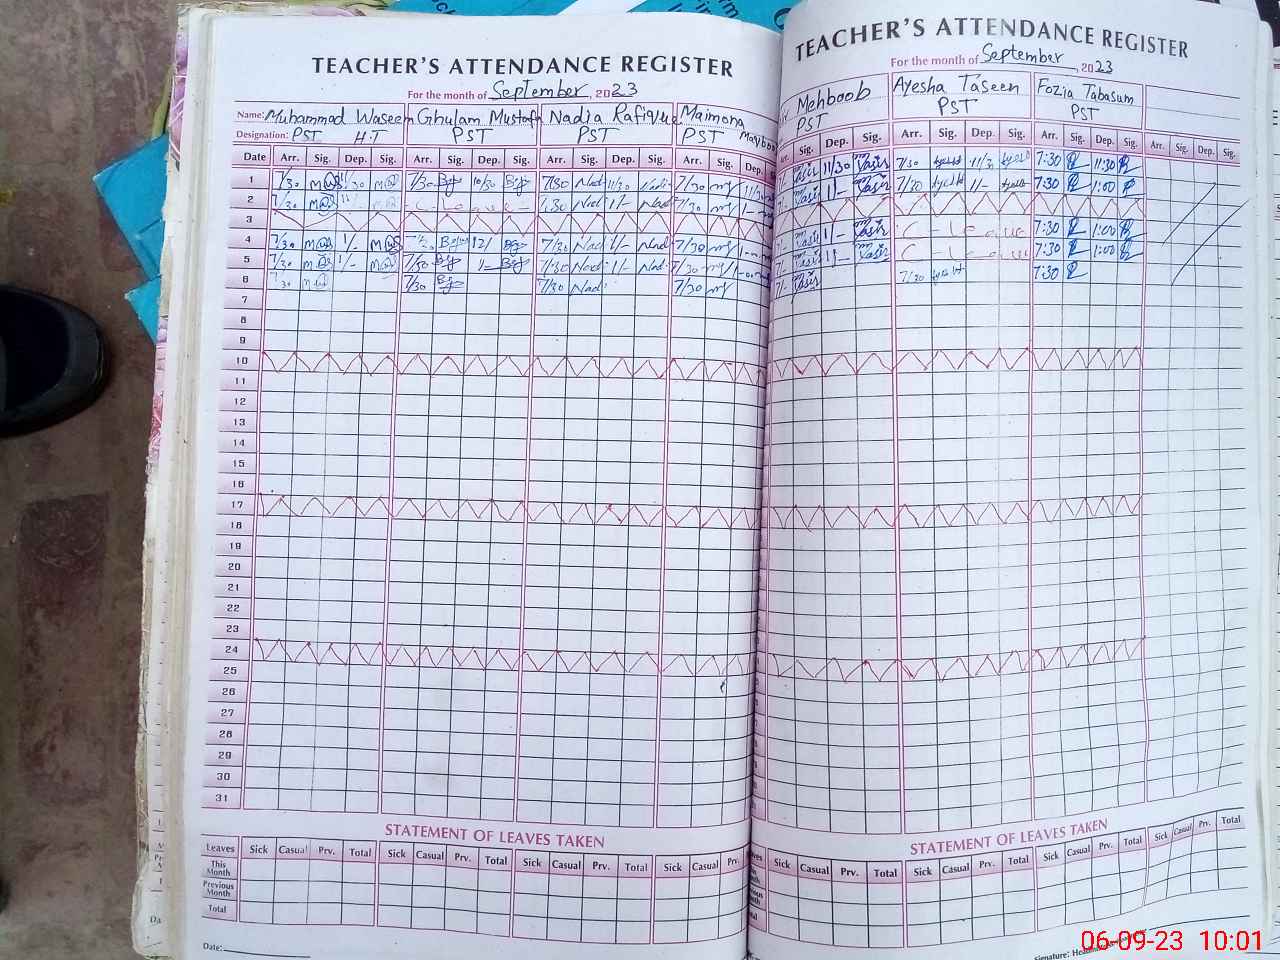 TEACHER'S ATTENDANCE REGISTER
For the month of September, 2023
Name: Muhammad Waseem Ghulam Mustafa Nadia Rafique Maimona
Designation: PST H.T PST PST PST
Date Arr. Sig. Dep. Sig. Arr. Sig. Dep. Sig. Arr. Sig. Dep. Sig. Arr. Sig. Dep.
1 7/30 11/30 7/30 10/30 7/30 Nad 11/30 7/30 my 11/30
2 7/30 7/30 Nad 1/- Nad 7/30 my
3
4 7/30 1/- 7/30 12/ 7/30 Nad 1/- Nad 7/30 my
5 7/30 1/- 7/30 7/30 Nad 1/- Nad 7/30 my
6 7/30 7/30 Nad 7/30 my
7
8
9
10
11
12
13
14
15
16
17
18
19
20
21
22
23
24
25
26
27
28
29
30
31
STATEMENT OF LEAVES TAKEN
Leaves Sick Casual Prv. Total Sick Casual Prv. Total Sick Casual Prv. Total Sick Casual Prv.
This Month
Previous Month
Total
Date:
TEACHER'S ATTENDANCE REGISTER
For the month of September, 2023
Mehboob Ayesha Taseen Fozia Tabasum
PST PST PST
Arr. Sig. Dep. Sig. Arr. Sig. Dep. Sig. Arr. Sig. Dep. Sig. Arr. Sig. Dep. Sig.
Yasir 11/30 Yasir 7/30 11/30 7:30 11:30
Yasir 1/- Yasir 7/30 1/- 7:30 1:00
Yasir 1/- Yasir C-Leave 7:30 1:00
Yasir 1/- Yasir C-Leave 7:30 1:00
7/- Yasir 7/30 7:30
STATEMENT OF LEAVES TAKEN
Sick Casual Prv. Total Sick Casual Prv. Total Sick Casual Prv. Total Sick Casual Prv. Total
Signature:
06-09-23 10:01